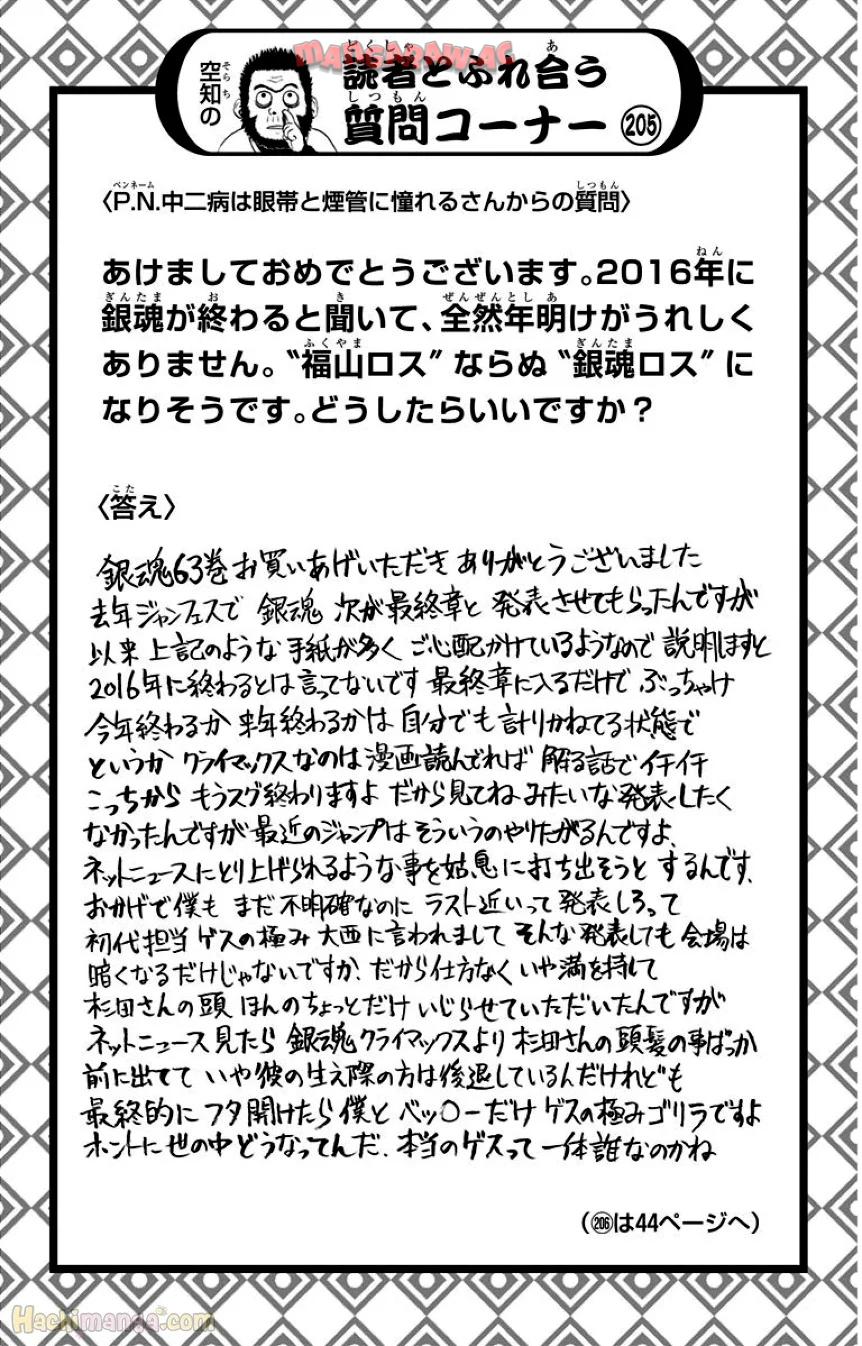 MANGARAWAC
空知の
読者とふれ合う
質問コーナー 205
〈P.N.中二病は眼帯と煙管に憧れるさんからの質問〉
あけましておめでとうございます。2016年に
銀魂が終わると聞いて、全然年明けがうれしく
ありません。〝福山ロス〟ならぬ〝銀魂ロス〟に
なりそうです。どうしたらいいですか？
〈答え〉
銀魂63巻お買いあげいただき ありがとうございました
去年ジャンフェスで 銀魂 次が最終章と 発表させてもらったんですが
以来 上記のような 手紙が多く ご心配かけているようなので 説明しますと
2016年に終わるとは言ってないです 最終章に入るだけで ぶっちゃけ
今年終わるか 来年終わるかは 自分でも計りかねてる状態で
というか クライマックスなのは漫画読んでれば 解る話でイチイチ
こっちから もうスグ終わりますよ だから見てね みたいな発表したく
なかったんですが 最近のジャンプは そういうのやりたがるんですよ、
ネットニュースにとり上げられるような事を姑息に打ち出そうと するんです、
おかげで僕も まだ不明確なのに ラスト近いって発表しろって
初代担当 ゲスの極み 大西に言われまして そんな発表しても 会場は
暗くなるだけじゃないですか、だから仕方なく いや満を持して
杉田さんの頭 ほんのちょっとだけ いじらせていただいたんですが
ネットニュース見たら 銀魂クライマックスより 杉田さんの頭髪の事ばっか
前に出てて いや彼の生え際の方は後退しているんだけれども
最終的に フタ開けたら 僕と ベッ〇ーだけ ゲスの極みゴリラですよ
ホントに 世の中 どうなってんだ、本当のゲスって 一体誰なのかね
（206は44ページへ）
Hachimanga.com